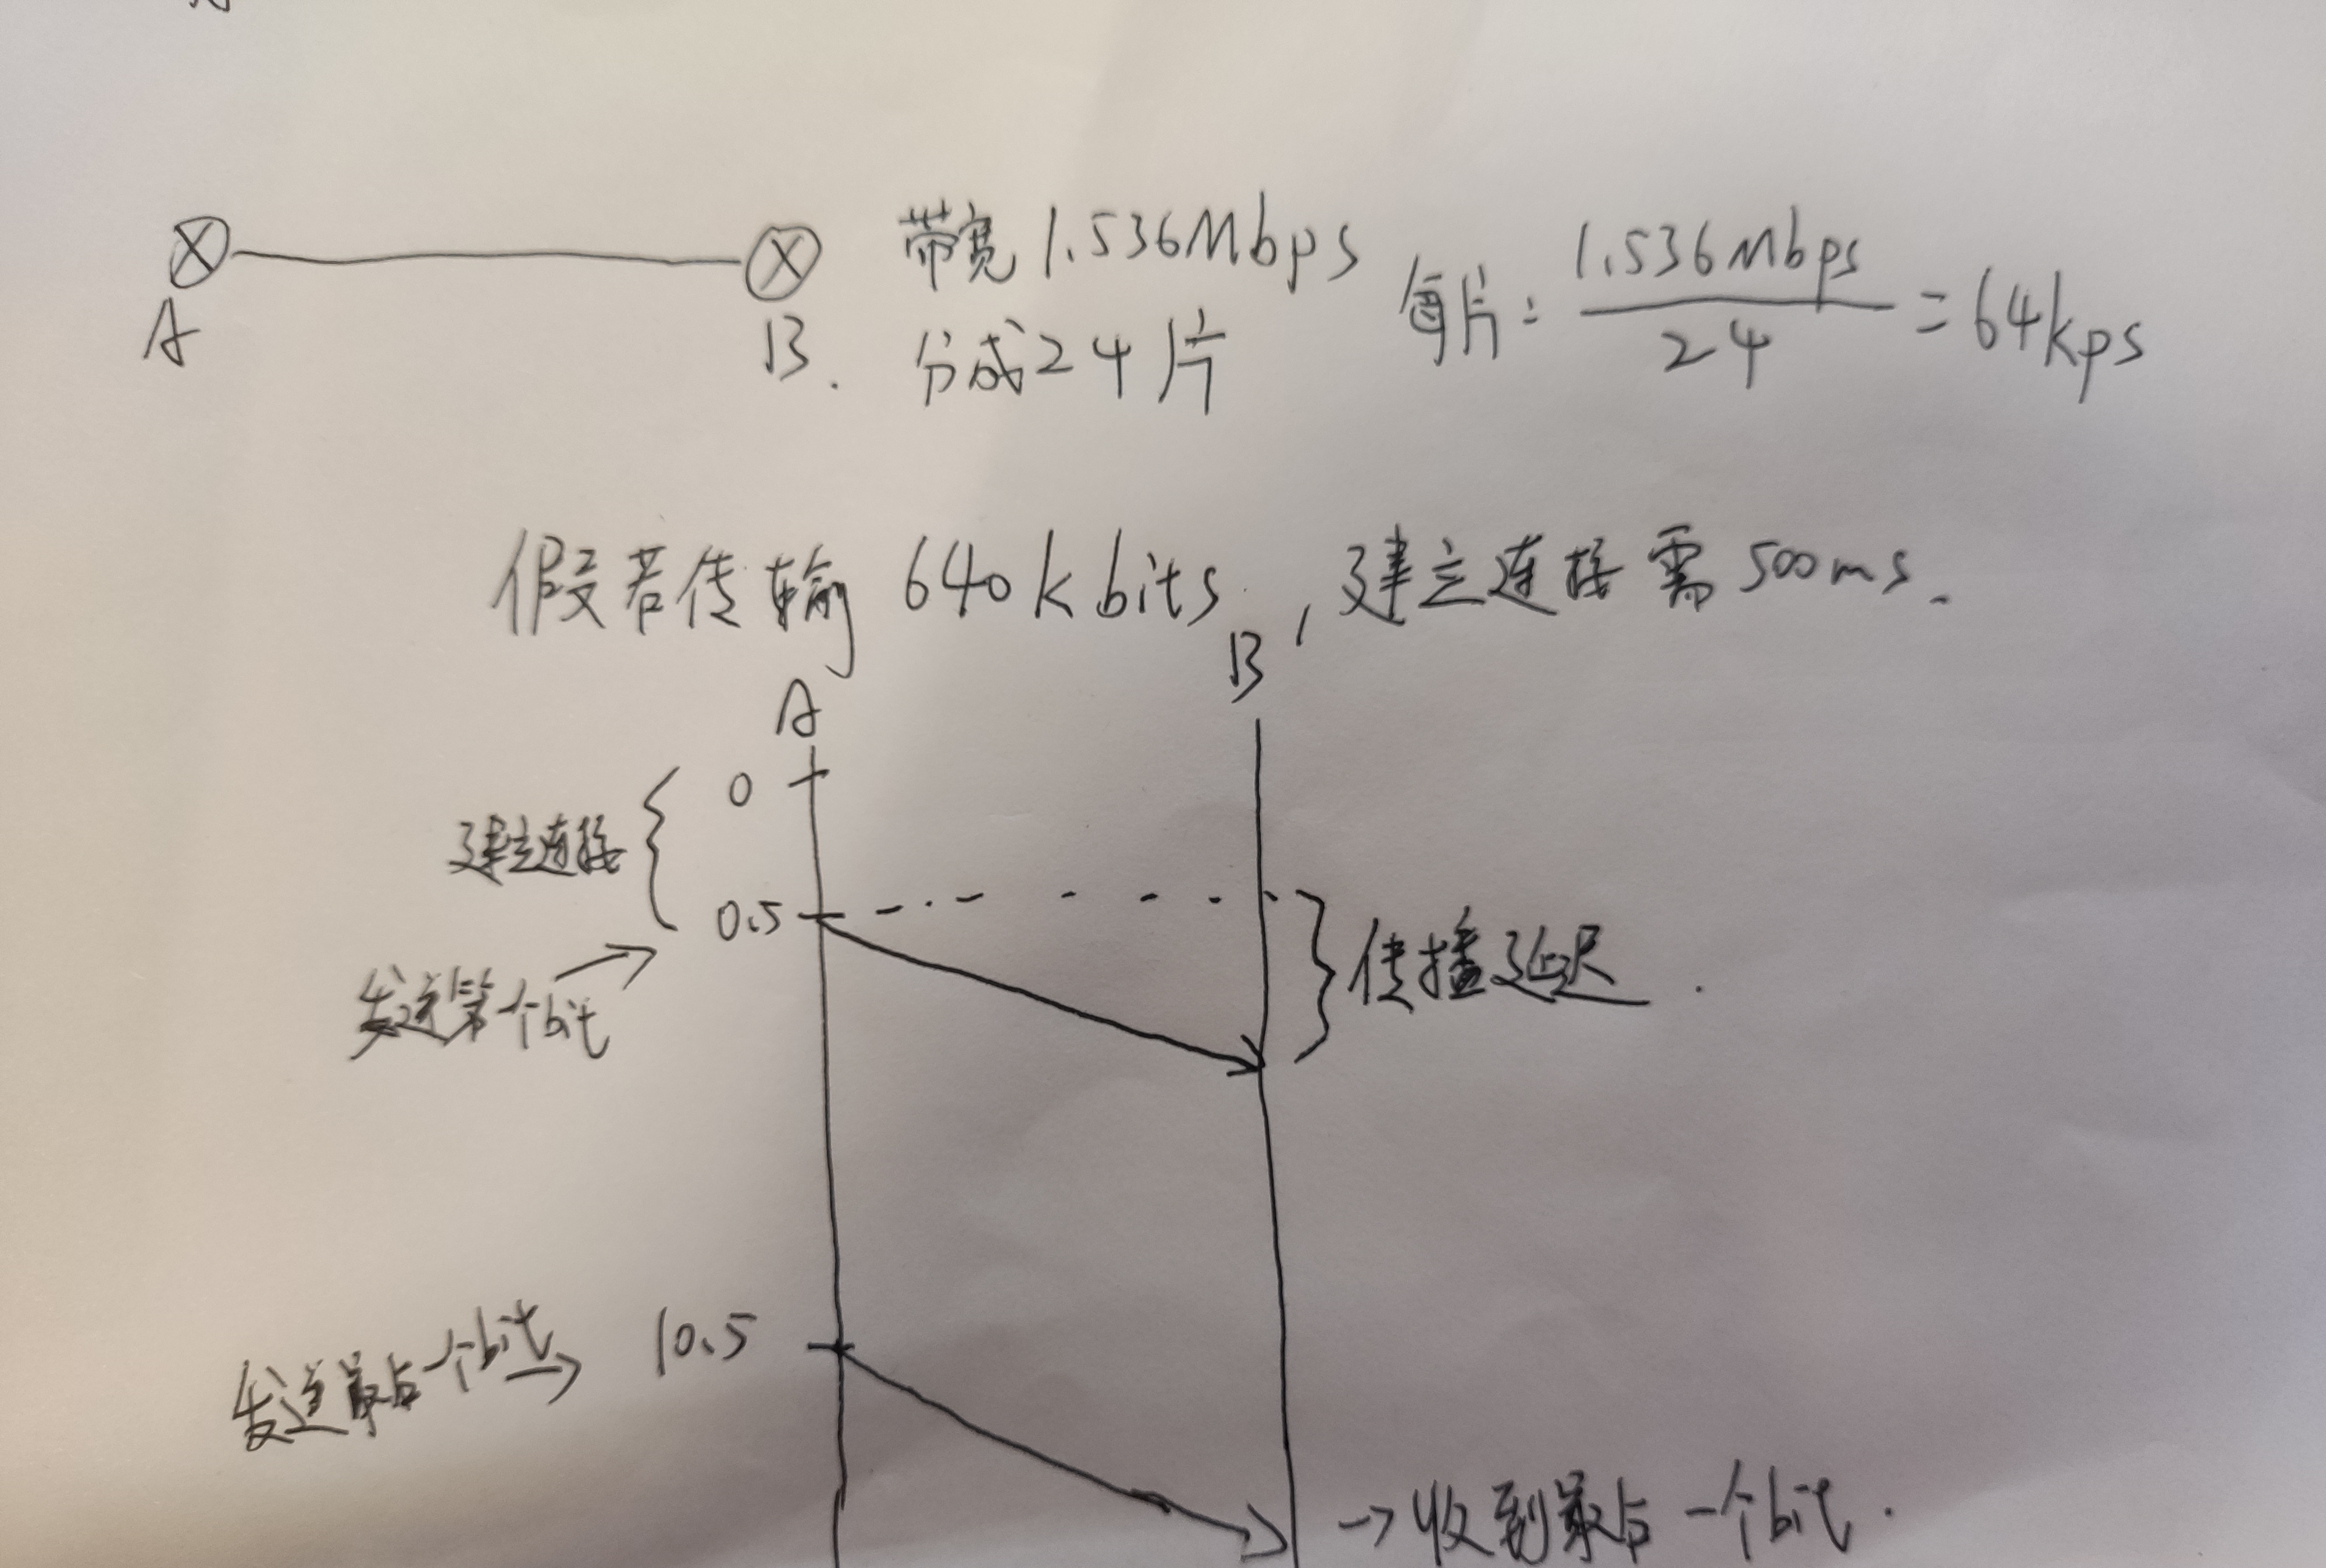 A
B.
带宽 1.536Mbps
分成24片
每片: 1.536Mbps / 24 = 64kps
假若传输 640k bits, 建立连接需 500ms.
A
B
0
建立连接
0.5
传播延迟.
发送第一个bit
发送最后一个bit → 10.5
→ 收到最后一个bit.